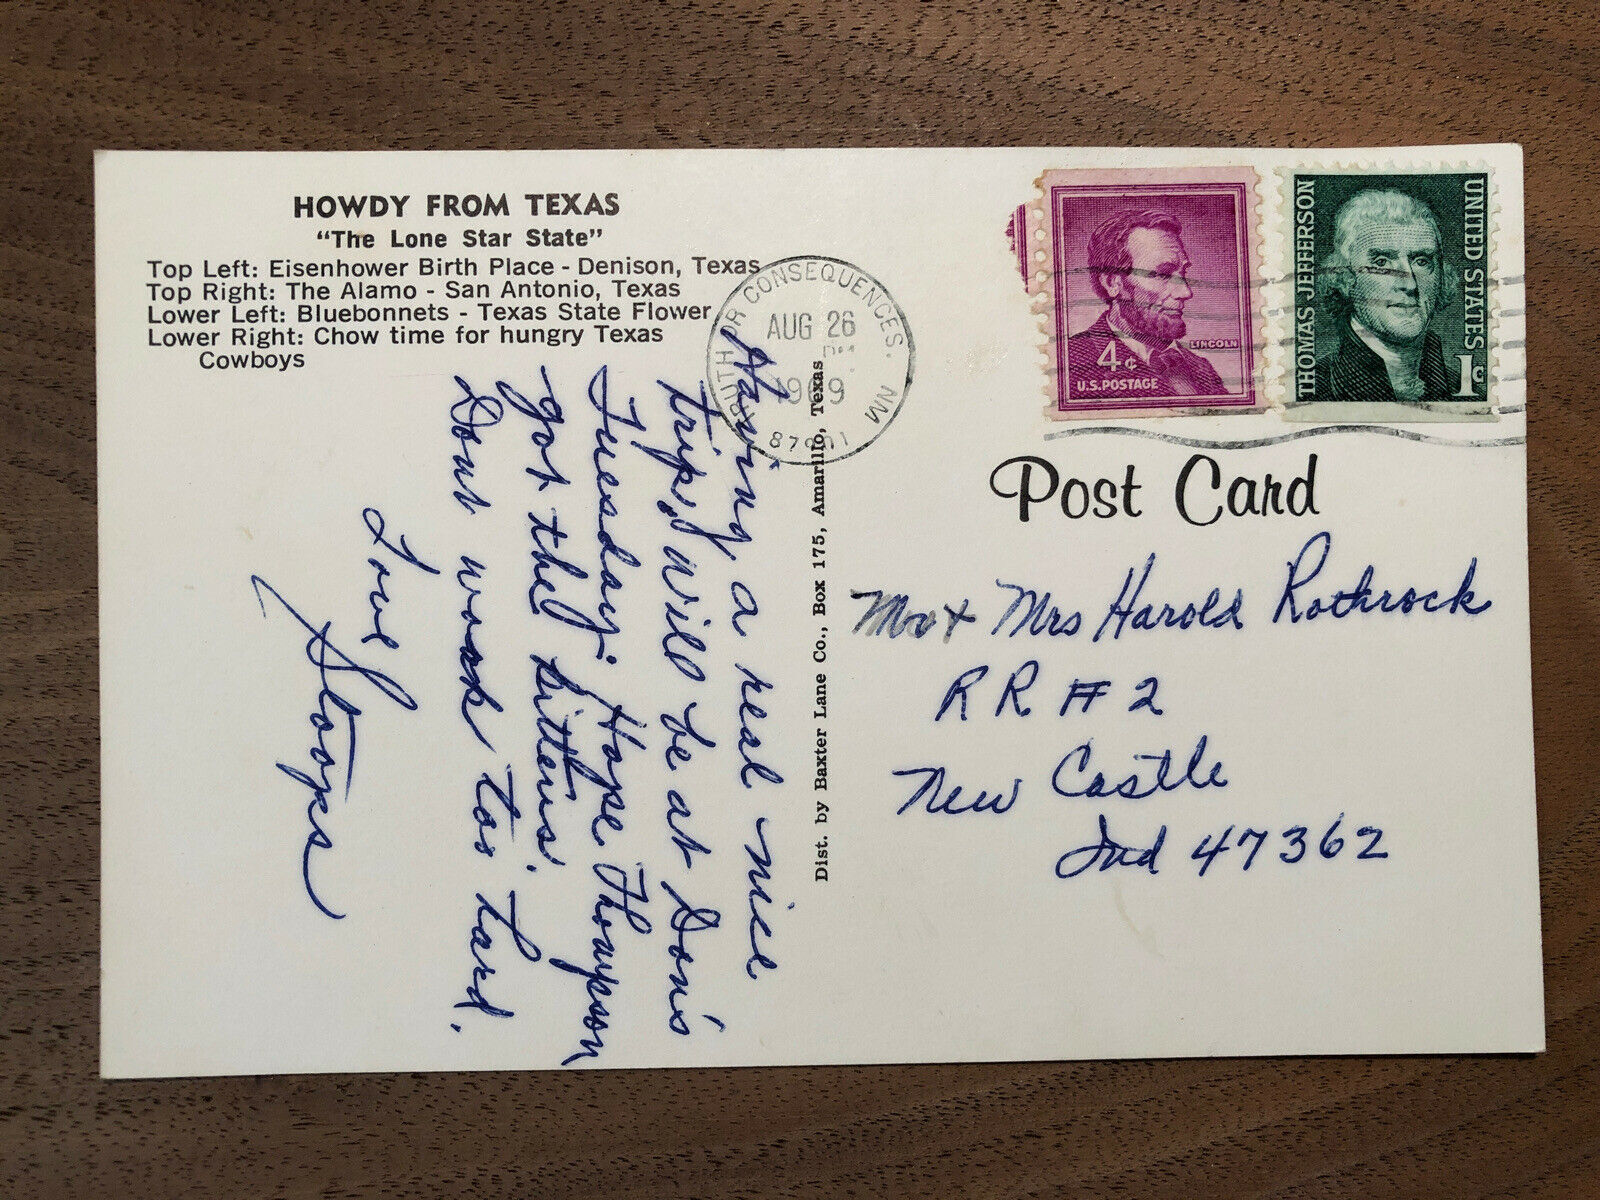 HOWDY FROM TEXAS
"The Lone Star State"
Top Left: Eisenhower Birth Place - Denison, Texas
Top Right: The Alamo - San Antonio, Texas
Lower Left: Bluebonnets - Texas State Flower
Lower Right: Chow time for hungry Texas
Cowboys
Having a real nice
trip, will be at Don's
Tuesday. Hope Thompson
got the kittens.
Dont work too hard.
Love
Stoops
Dist. by Baxter Lane Co., Box 175, Amarillo, Texas
TRUTH OR CONSEQUENCES, NM
AUG 26
PM
1969
87901
4¢
LINCOLN
U.S. POSTAGE
THOMAS JEFFERSON
UNITED STATES
1¢
Post Card
Mr + Mrs Harold Rothrock
RR # 2
New Castle
Ind 47362